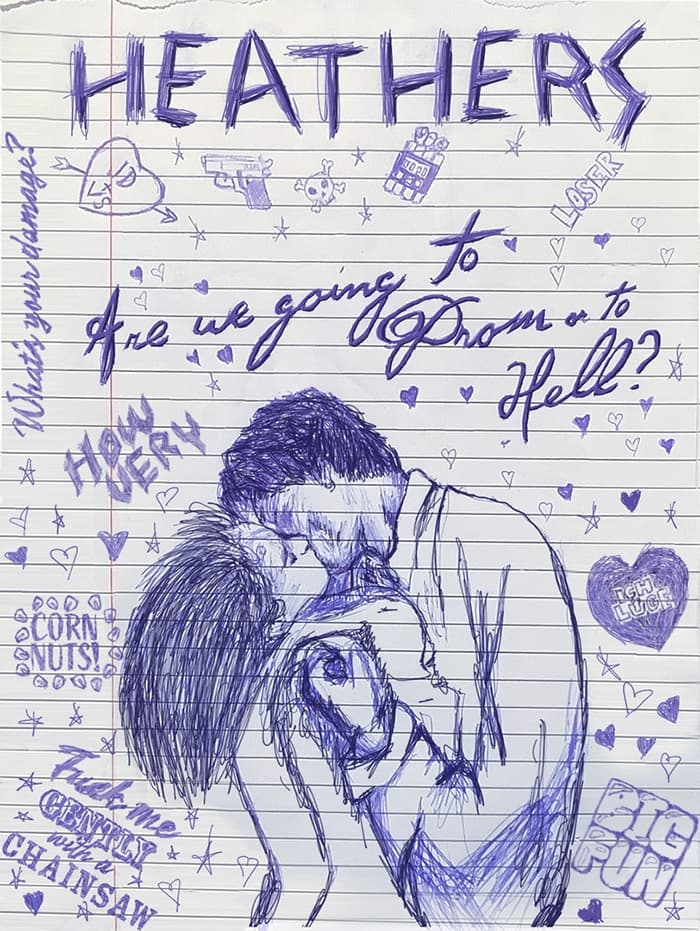 HEATHERS
What's your damage?
LOSER
Are we going to
Prom or to
Hell?
HOW
VERY
ICH
LUGE
CORN
NUTS!
Fuck me
GENTLY
with a
CHAINSAW
BIG
FUN